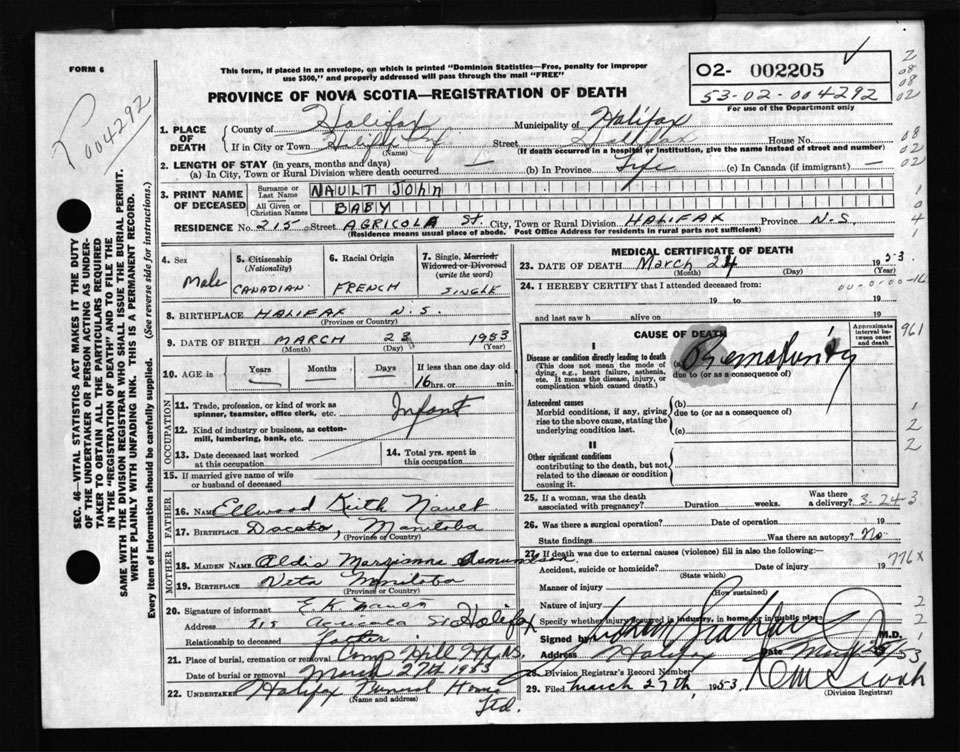 FORM 6
This form, if placed in an envelope, on which is printed "Dominion Statistics—Free, penalty for improper
use $300," and properly addressed will pass through the mail "FREE"
O2- 002205
53-02-004292
For use of the Department only
004292
PROVINCE OF NOVA SCOTIA—REGISTRATION OF DEATH
1. PLACE OF DEATH
County of Halifax Municipality of Halifax
If in City or Town Halifax Street House No.
(Name) (If death occurred in a hospital or institution, give the name instead of street and number)
2. LENGTH OF STAY (in years, months and days)
(a) In City, Town or Rural Division where death occurred (b) In Province Life (c) In Canada (if immigrant) —
3. PRINT NAME OF DECEASED
Surname or Last Name NAULT John
All Given or Christian Names BABY
RESIDENCE No. 215 Street AGRICOLA St. City, Town or Rural Division HALIFAX Province N.S.
(Residence means usual place of abode. Post Office Address for residents in rural parts not sufficient)
4. Sex
Male
5. Citizenship (Nationality)
CANADIAN
6. Racial Origin
FRENCH
7. Single, Married, Widowed or Divorced (write the word)
SINGLE
8. BIRTHPLACE HALIFAX N.S.
(Province or Country)
9. DATE OF BIRTH MARCH 23 1953
(Month) (Day) (Year)
10. AGE in Years Months Days If less than one day old
16 hrs. or min.
OCCUPATION
11. Trade, profession, or kind of work as spinner, teamster, office clerk, etc. Infant
12. Kind of industry or business, as cotton-mill, lumbering, bank, etc.
13. Date deceased last worked at this occupation
14. Total yrs. spent in this occupation
15. If married give name of wife or husband of deceased
FATHER
16. NAME Ellwood Keith Nault
17. BIRTHPLACE Manitoba
(Province or Country)
MOTHER
18. MAIDEN NAME
19. BIRTHPLACE Vita Manitoba
(Province or Country)
20. Signature of informant E. K. Nault
Address 215 Agricola St Halifax
Relationship to deceased Father
21. Place of burial, cremation or removal Camp Hill Hfx N.S.
Date of burial or removal March 27th 1953
22. UNDERTAKER Halifax Funeral Home Ltd.
(Name and address)
MEDICAL CERTIFICATE OF DEATH
23. DATE OF DEATH March 24 1953
(Month) (Day) (Year)
24. I HEREBY CERTIFY that I attended deceased from:
19 to 19
and last saw h alive on 19
CAUSE OF DEATH
Approximate interval between onset and death
I
Disease or condition directly leading to death
(This does not mean the mode of dying, e.g., heart failure, asthenia, etc. It means the disease, injury, or complication which caused death.)
(a) Prematurity
due to (or as a consequence of)
Antecedent causes
Morbid conditions, if any, giving rise to the above cause, stating the underlying condition last.
(b)
due to (or as a consequence of)
(c)
II
Other significant conditions
contributing to the death, but not related to the disease or condition causing it.
25. If a woman, was the death associated with pregnancy? Duration weeks. Was there a delivery? 3-24-3
26. Was there a surgical operation? Date of operation 19
State findings Was there an autopsy? No
27. If death was due to external causes (violence) fill in also the following:
Accident, suicide or homicide? Date of injury 19
(State which)
Manner of injury
(How sustained)
Nature of injury
Specify whether injury occurred in industry, in home or in public place
Signed by M.D.
Address Halifax Date
28. Division Registrar's Record Number
29. Filed March 27th, 1953
(Division Registrar)
961
776X
SEC. 46—VITAL STATISTICS ACT MAKES IT THE DUTY
OF THE UNDERTAKER OR PERSON ACTING AS UNDER-
TAKER TO OBTAIN ALL THE PARTICULARS REQUIRED
IN THE "REGISTRATION OF DEATH" AND TO FILE THE
SAME WITH THE DIVISION REGISTRAR WHO SHALL ISSUE THE BURIAL PERMIT.
WRITE PLAINLY WITH UNFADING INK. THIS IS A PERMANENT RECORD.
Every item of Information should be carefully supplied. (See reverse side for instructions.)